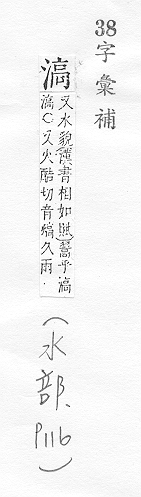 38 字彙補
滈
又水貌漢書相如賦翯乎滈
滈○又火酷切音熇久雨.
(水部、P116)